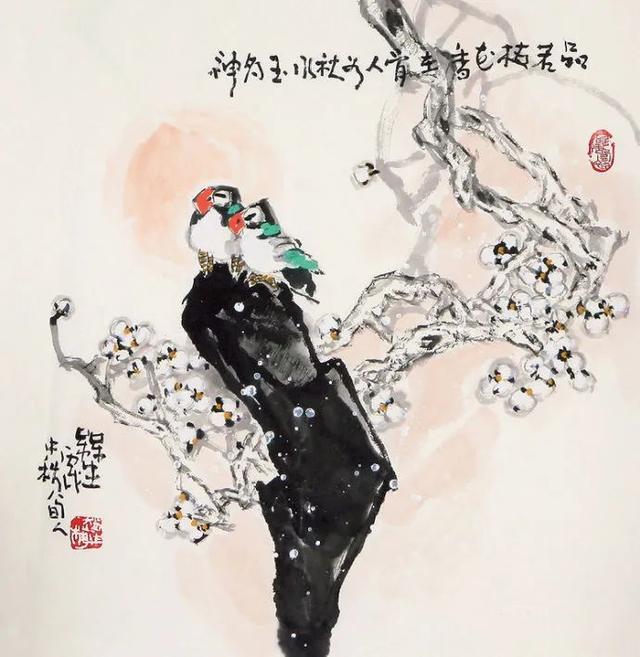 品若梅花香在骨人如秋水玉为神
丙戌
八旬人